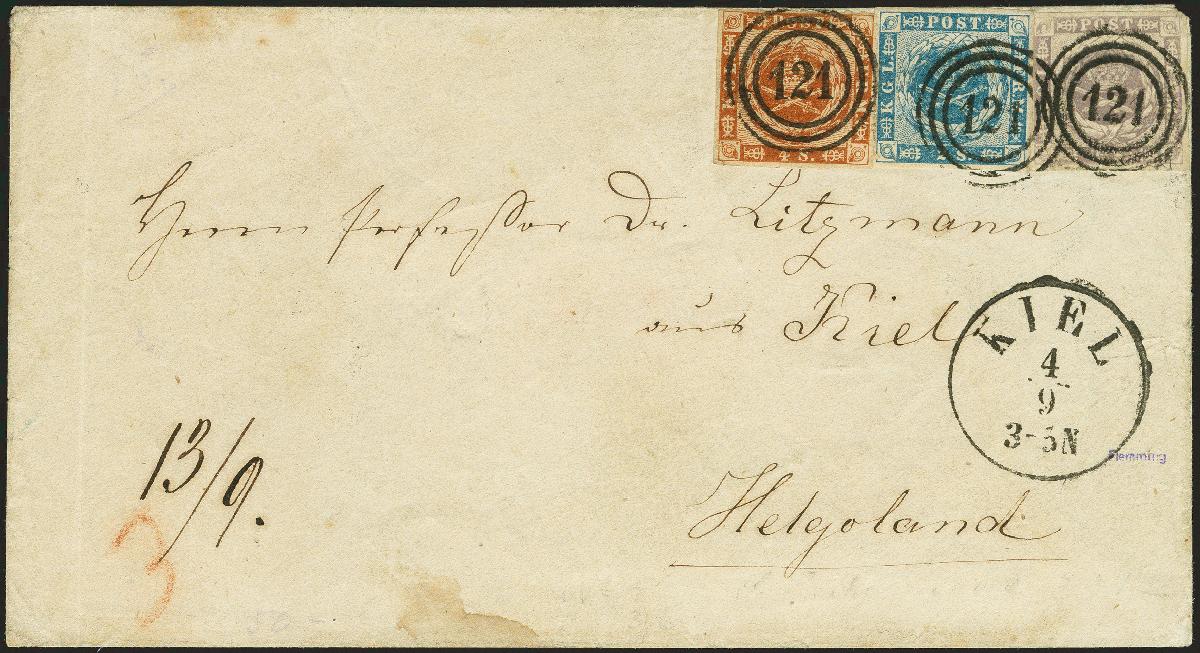 POST 4 S. 121
KGL POST FRM S. 121
POST 121
Herrn Professor Dr. Litzmann
aus Kiel
KIEL
4
9
3-5N
Flemming
13/9.
3
Helgoland